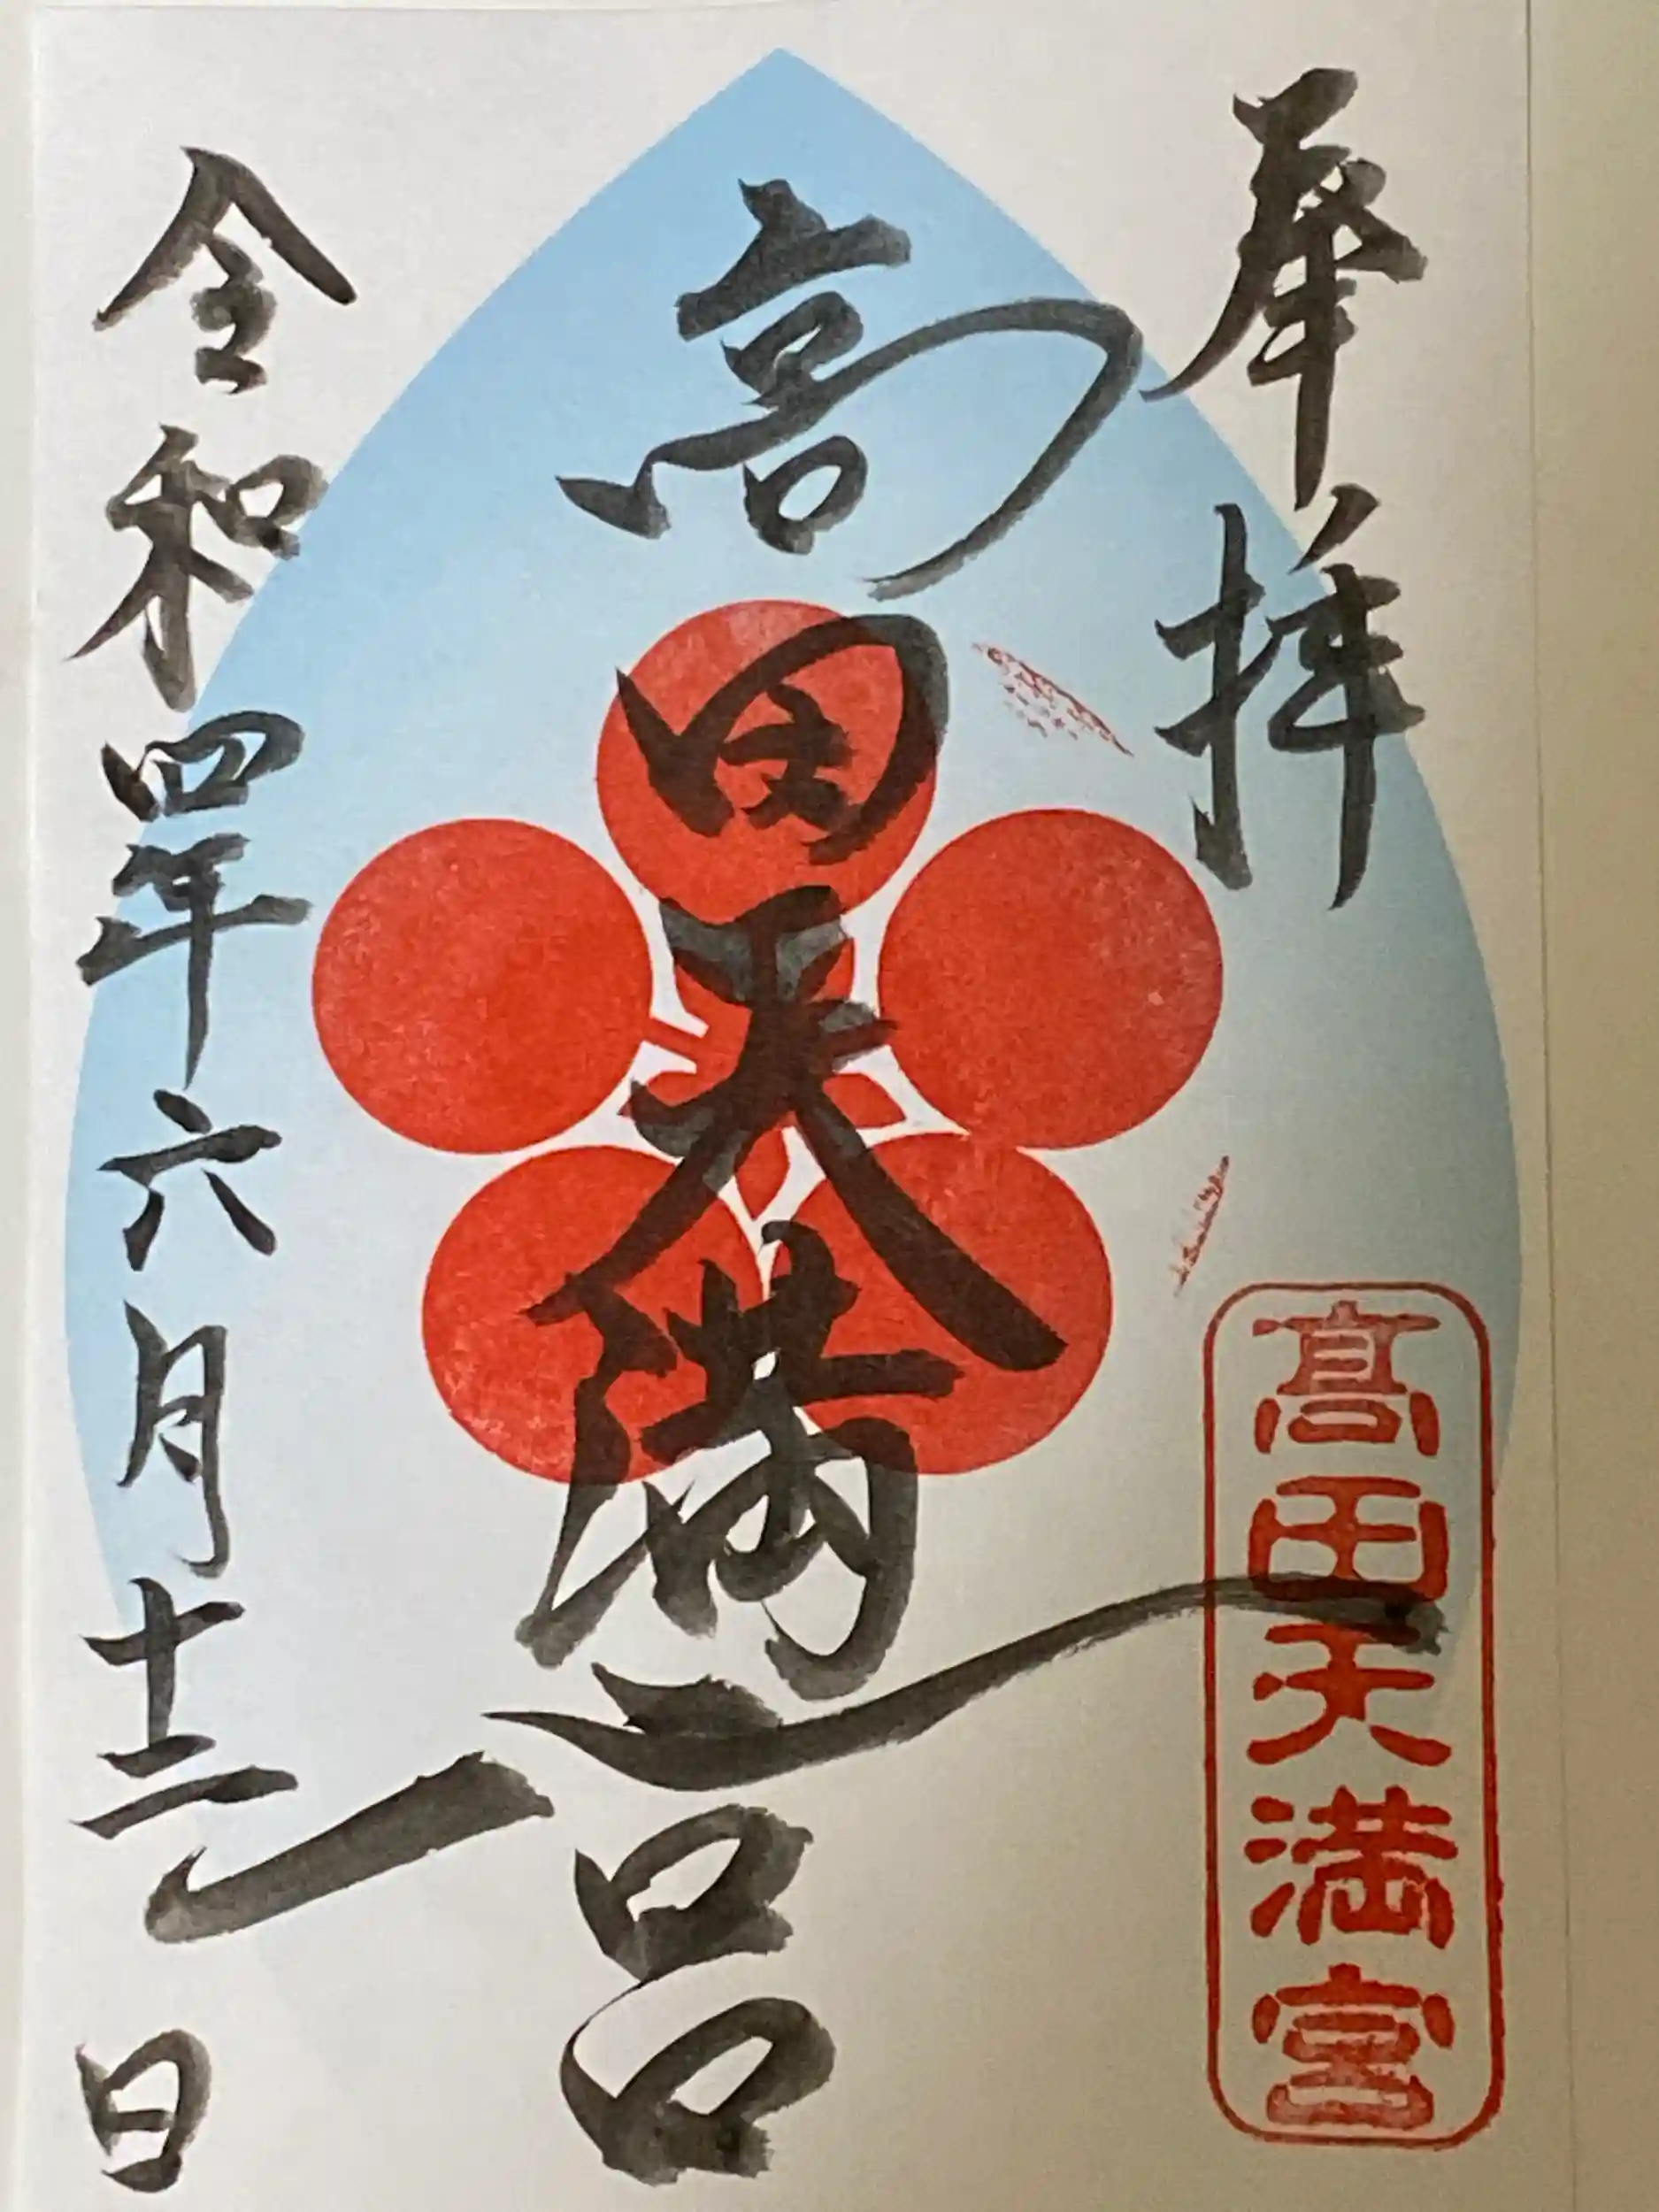 奉拝
高田天満宮
髙田天満宮
令和四年六月十三日